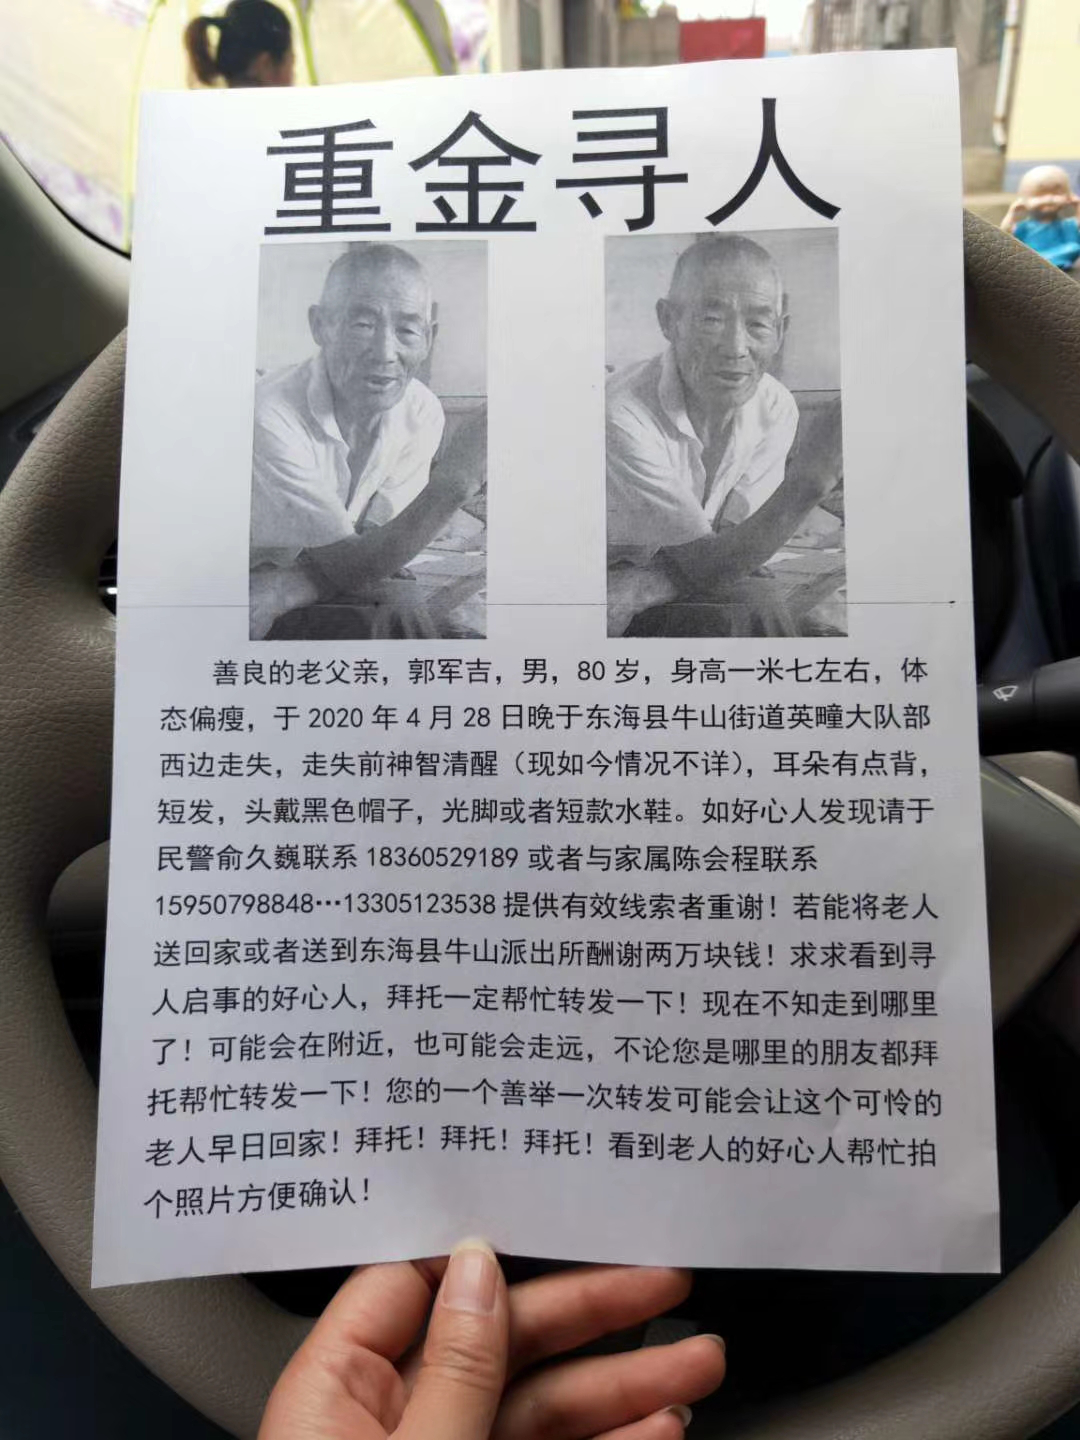 重金寻人
善良的老父亲，郭军吉，男，80岁，身高一米七左右，体
态偏瘦，于2020年4月28日晚于东海县牛山街道英疃大队部
西边走失，走失前神智清醒（现如今情况不详），耳朵有点背，
短发，头戴黑色帽子，光脚或者短款水鞋。如好心人发现请于
民警俞久巍联系18360529189或者与家属陈会程联系
15950798848…13305123538提供有效线索者重谢！若能将老人
送回家或者送到东海县牛山派出所酬谢两万块钱！求求看到寻
人启事的好心人，拜托一定帮忙转发一下！现在不知走到哪里
了！可能会在附近，也可能会走远，不论您是哪里的朋友都拜
托帮忙转发一下！您的一个善举一次转发可能会让这个可怜的
老人早日回家！拜托！拜托！拜托！看到老人的好心人帮忙拍
个照片方便确认！